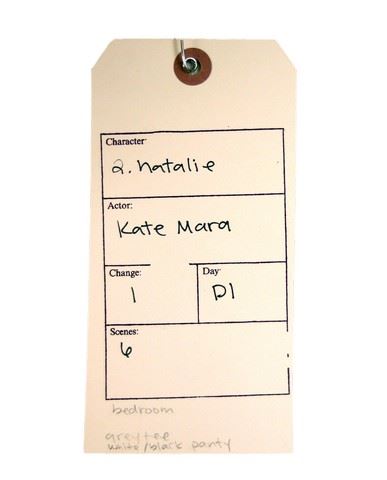 Character
2. natalie
Actor:
Kate Mara
Change:
1
Day
D1
Scenes:
6
bedroom
grey tee
white/black panty